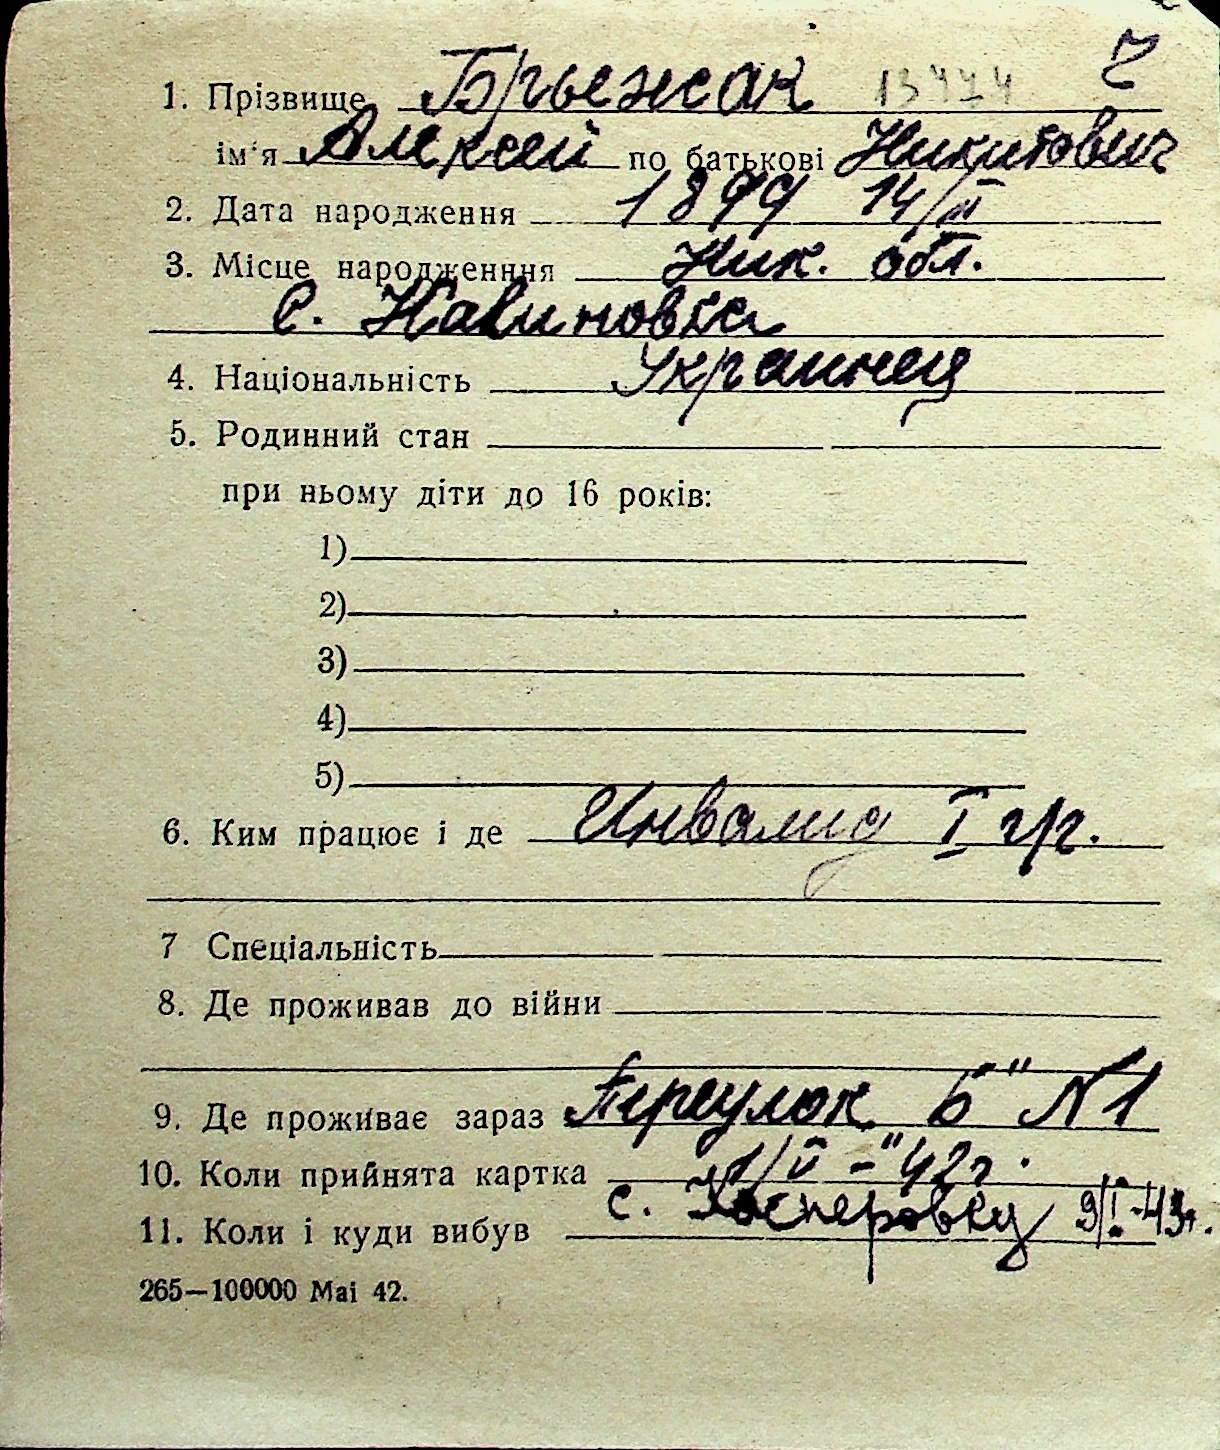 Ч
1. Прізвище Брьежак 13474
ім'я Алексей по батькові Никитович
2. Дата народження 1899 14/II
3. Місце народженння Ник. обл.
с. Калиновка
4. Національність Украинец
5. Родинний стан
при ньому діти до 16 років:
1)
2)
3)
4)
5)
6. Ким працює і де Инвалид I гр.
7 Спеціальність
8. Де проживав до війни
9. Де проживає зараз Переулок Б" N 1
10. Коли прийнята картка 1/II - "42г.
11. Коли і куди вибув с. Касперовку 9/I-43г.
265—100000 Mai 42.